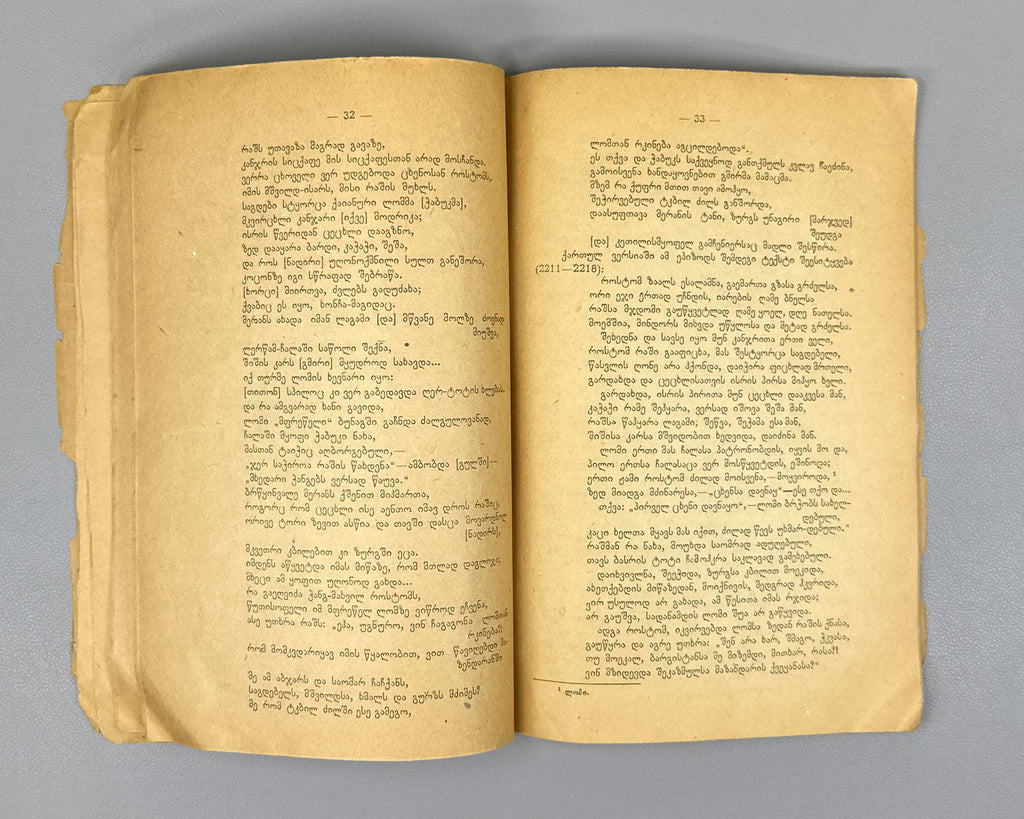 — 32 —
რაშს უთავაზა მაგრად გავაზე,
კანჯრის სიცქაფე მის სიცქაფესთან არად მოსჩანდა.
ვერრა ცხოველი ვერ უდგებოდა ცხენოსან როსტომს,
იმის მშვილდ-ისარს, მისი რაშის მუხლს.
საგდები სტყორცა ქაიანური ლომმა [ჭაბუკმა],
მკვირცხლი კანჯარი [იქვე] მოდრიკა;
ისრის წვერიდან ცეცხლი დააგზნო,
ზედ დააყარა ბარდი, კაჭაჭი, შეშა,
და როს [ნადირი] უღონოქმნილი სულთ განეშორა,
კოცონზე იგი სწრაფად შებრაწა.
[ხორცი] მიირთვა, ძვლებს გადუძახა;
ქვაბიც ეს იყო, ხონჩა-მაგიდაც.
მერანს ახადა იმან ლაგამი [და] მწვანე მოლზე ძოვნად
მიუშვა,
ლერწამ-ჩალაში საწოლი შექნა,
შიშის კარს [გმირი] მყუდროდ სახავდა...
იქ თურმე ლომის ხევნარი იყო:
[თითონ] სპილოც კი ვერ გაბედავდა ღერ-ტოტის ხლებას.
და რა ამგვარად ხანი გავიდა,
ლომი „მფრეწელი“ ბუნაგში გაჩნდა ძალგულოვანად,
ჩალაში მყოფი ჭაბუკი ნახა,
მასთან ტაიჭიც აღბორგებული,—
„ჯერ საჭიროა რაშის წახდენა“—ამბობდა [გულში]—
„მხედარი ჭანგებს ვერსად წაუვა.“
ბრწყინვალე მერანს ქშენით მიჰმართა,
როგორც რომ ცეცხლი ისე აენთო იმავ დროს რაშიც,
ორივე ტორი ზევით ასწია და თავში დასცა მოვარდნილ
[ნადირს],
მკვეთრი კბილებით კი ზურგში ეცა.
იმდენს აწყვეტდა იმას მიწაზე, რომ მთლად დაგლიჯა;
მხეცი ამ ყოფით უღონოდ გახდა...
რა გაეღვიძა ჭანგ-მახვილ როსტომს,
წუთისოფელი იმ მფრეწელ ლომზე ვიწროდ ეჩვენა,
ასე უთხრა რაშს: „ეჰა, უგნურო, ვინ ჩაგაგონა ლომთან
რკინება!!
რომ მომკვდარიყავ იმის წყალობით, ვით წავიღებდი მა-
ზენდარანში
მე ამ აბჯარს და საომარ ჩაჩქანს,
საგდებელს, მშვილდსა, ხმალს და გურზს მძიმეს?
მე რომ ტკბილ ძილში ესე გამეგო,
— 33 —
ლომთან რკინება აგცილდებოდა“.
ეს თქვა და ჭაბუკს საქვეყნოდ განთქმულს კვლავ ჩაეძინა,
გამოისვენა ხანდაყოვნებით გმირმა მამაცმა.
მზემ რა ქუფრი მთით თავი ამოჰყო,
შეჭირვებული ტკბილ ძილს განშორდა,
დაასუფთავა მერანის ტანი, ზურგს უნაგირი [მარჯვედ]
შეუდგა
[და] კეთილისმყოფელ გამჩენიერსაც მადლი შესწირა.
ქართულ ვერსიაში ამ ეპიზოდს შემდეგი ტექსტი შეესიტყვება
(2211—2218):
როსტომ ზაალს ესალამნა, გაემართა გზასა გრძელსა,
ორი ეჯი ერთად უჩნდის, იარების ღამე ბნელსა
რაშსა მჯდომი გაუწყვეტლად ღამე ყოელ, დღე ნათელსა.
მოემშია, მინდორს მიხვდა უწყლოსა და მეტად გრძელსა.
შეხედნა და სავსე იყო მუნ კანჯრითა ერთი ველი,
როსტომ რაში გააფიცხა, მას შესტყორცა საგდებელი,
წასვლის ღონე არა ჰქონდა, დაიჭირა ფიცხლად მრთელი,
გარდახდა და ცეცხლისათვის ისრის პირსა მიჰყო ხელი.
გარდახდა, ისრის პირითა მუნ ცეცხლი დააკვესა მან,
კაჭაჭი რამე შეჰყარა, ვერსად იშოვა შეშა მან,
რაშსა წაჰყარა ლაგამი; შეწვა, შეჭამა ესა მან,
შიშისა კარსა მშვიდობით ხედვიდა, დაიძინა მან.
ლომი ერთი მას ჩალასა პატრონობდის, იყვის მო და,
პილო ერთსა ჩალასაცა ვერ მოსწყვეტდის, ეშინოდა;
ერთი ჟამი როსტომ ძილად მოისვენა,—მოყვიროდა, ¹
ზედ მიადგა მძინარესა,—„ცხენსა დავნაყ“—ესე თქო და...
თქვა: „პირველ ცხენი დავნაყო“,—ლომი ბრჭობს სახელ-
დებული,
კაცი ხელთა მყავს მას იქით, ძილად წევს უხმარ-დებული.“
რაშმან რა ნახა, მოუხდა საომრად ადუღებული,
თავს ბასრის ტოტი ჩამოჰკრა საკლავად გამეხებული.
დაიხვივლნა, შეეჭიდა, ზურგსა კბილით მოეკიდა,
ახეთქებდის მიწაზედან, მოიქნივის, მედგრად ჰკვრიდა,
ვირ უსულოდ არ გახადა, ამ წესითა იმას რჯიდა;
არ გაუშვა, სადანამდის ლომი შუა არ გაწყვიდა.
ადგა როსტომ, იკვირვებდა ლომსა ზედან რაშის ქნასა,
გაუწყრა და აგრე უთხრა: „შენ არა ხარ, შმაგო, ჭკვასა,
თუ მოეკალ, ბარგისტანსა მე მიზემდი, მითხარ, რასა?!
ვინ მზიდევდა შეკაზმულსა მაზანდარის ქვეყანასა?“
¹ ლომი.